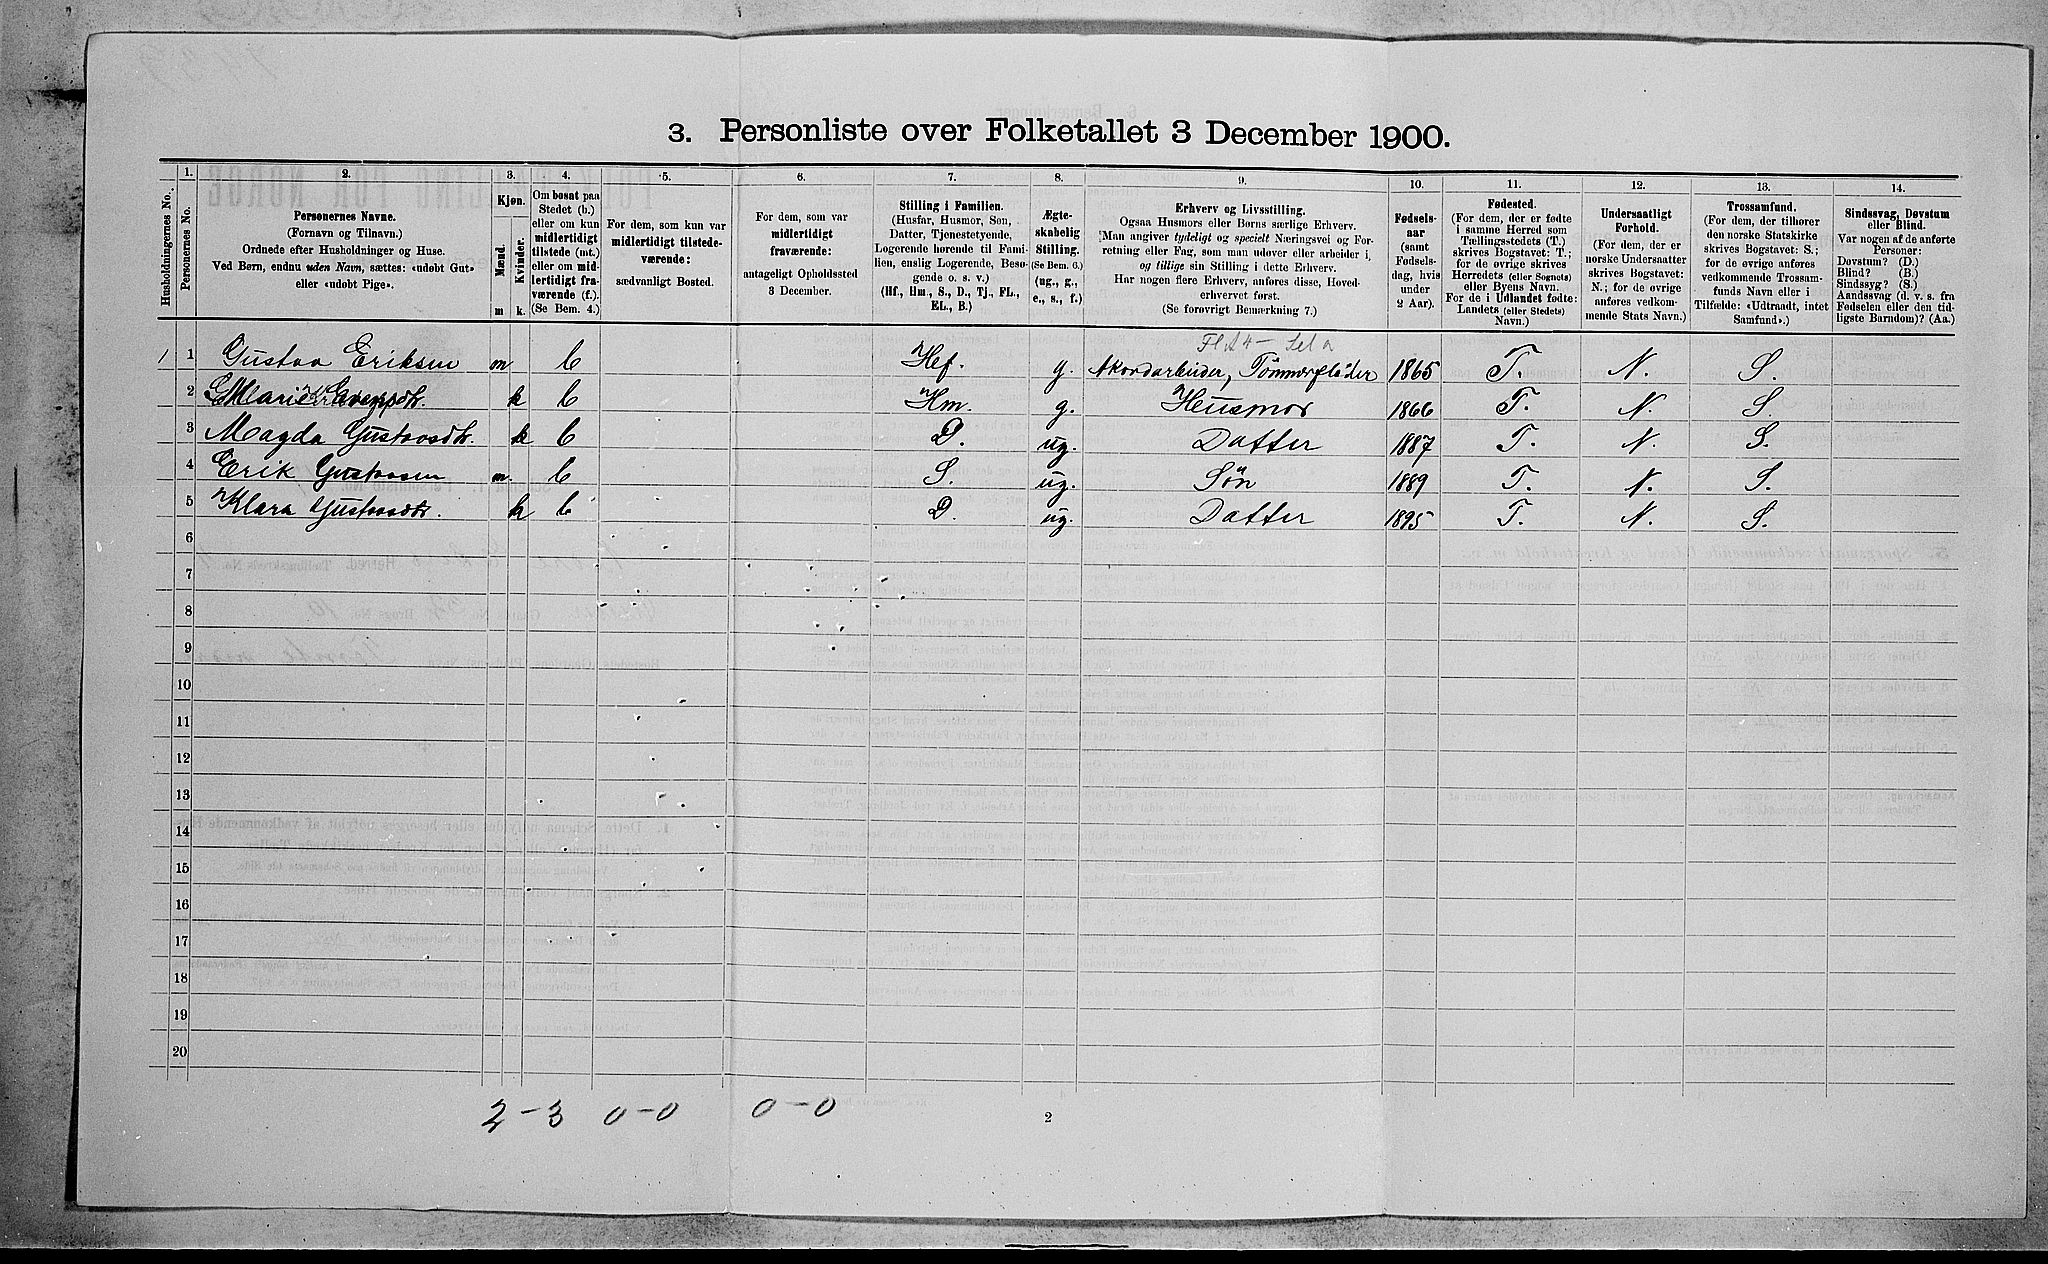 3. Personliste over Folketallet 3 December 1900.
1. 2. 3. 4. 5. 6. 7. 8. 9. 10. 11. 12. 13. 14.
Husholdningernes No.
Personernes No.
Personernes Navne.
(Fornavn og Tilnavn.)
Ordnede efter Husholdninger og Huse.
Ved Børn, endnu uden Navn, sættes: «udøbt Gut»
eller «udøbt Pige».
Kjøn.
Mænd.
Kvinder.
m k.
Om bosat paa
Stedet (b.)
eller om kun
midlertidigt
tilstede (mt.)
eller om mid-
lertidigt fra-
værende (f.).
(Se Bem. 4.)
For dem, som kun var
midlertidigt tilstede-
værende:
sædvanligt Bosted.
For dem, som var
midlertidigt
fraværende:
antageligt Opholdssted
3 December.
Stilling i Familien.
(Husfar, Husmor, Søn,
Datter, Tjenestetyende,
Logerende hørende til Fami-
lien, enslig Logerende, Besø-
gende o. s. v.)
(Hf., Hm., S., D., Tj., FL.,
EL., B.)
Ægte-
skabelig
Stilling.
(Se Bem. 6.)
(ug., g.,
e., s., f.)
Erhverv og Livsstilling.
Ogsaa Husmors eller Børns særlige Erhverv.
Man angiver tydeligt og specielt Næringsvei og For-
retning eller Fag, som man udøver eller arbeider i,
og tillige sin Stilling i dette Erhverv.
Har nogen flere Erhverv, anføres disse, Hoved-
erhvervet først.
(Se forøvrigt Bemærkning 7.)
Fødsels-
aar
(samt
Fødsels-
dag, hvis
under
2 Aar).
Fødested.
(For dem, der er fødte
i samme Herred som
Tællingsstedets (T.)
skrives Bogstavet: T.;
for de øvrige skrives
Herredets (eller Sognets)
eller Byens Navn.
For de i Udlandet fødte:
Landets (eller Stedets)
Navn.)
Undersaatligt
Forhold.
(For dem, der er
norske Undersaatter
skrives Bogstavet:
N.; for de øvrige
anføres vedkom-
mende Stats Navn.)
Trossamfund.
(For dem, der tilhører
den norske Statskirke
skrives Bogstavet: S.;
for de øvrige anføres
vedkommende Trossam-
funds Navn eller i
Tilfælde: «Udtraadt, intet
Samfund».)
Sindssvag, Døvstum
eller Blind.
Var nogen af de anførte
Personer:
Døvstum? (D.)
Blind? (B.)
Sindssyg? (S.)
Aandssvag (d. v. s. fra
Fødselen eller den tid-
ligste Barndom)? (Aa.)
1 1 Gustav Eriksen m b Hf. g. Akordarbeider, Tömmerfløder 1865 T. N. S.
2 Marie k b Hm. g. Husmor 1866 T. N. S.
3 Magda Gustavsdtr. k b D. ug. Datter 1887 T. N. S.
4 Erik Gustavsen m. b S. ug. Sön 1889 T. N. S.
5 Klara Gustavsdtr. k b D. ug. Datter 1895 T. N. S.
6
7
8
9
10
11
12
13
14
15
16
17
18
19
20
2 - 3 0 - 0 0 - 0
2